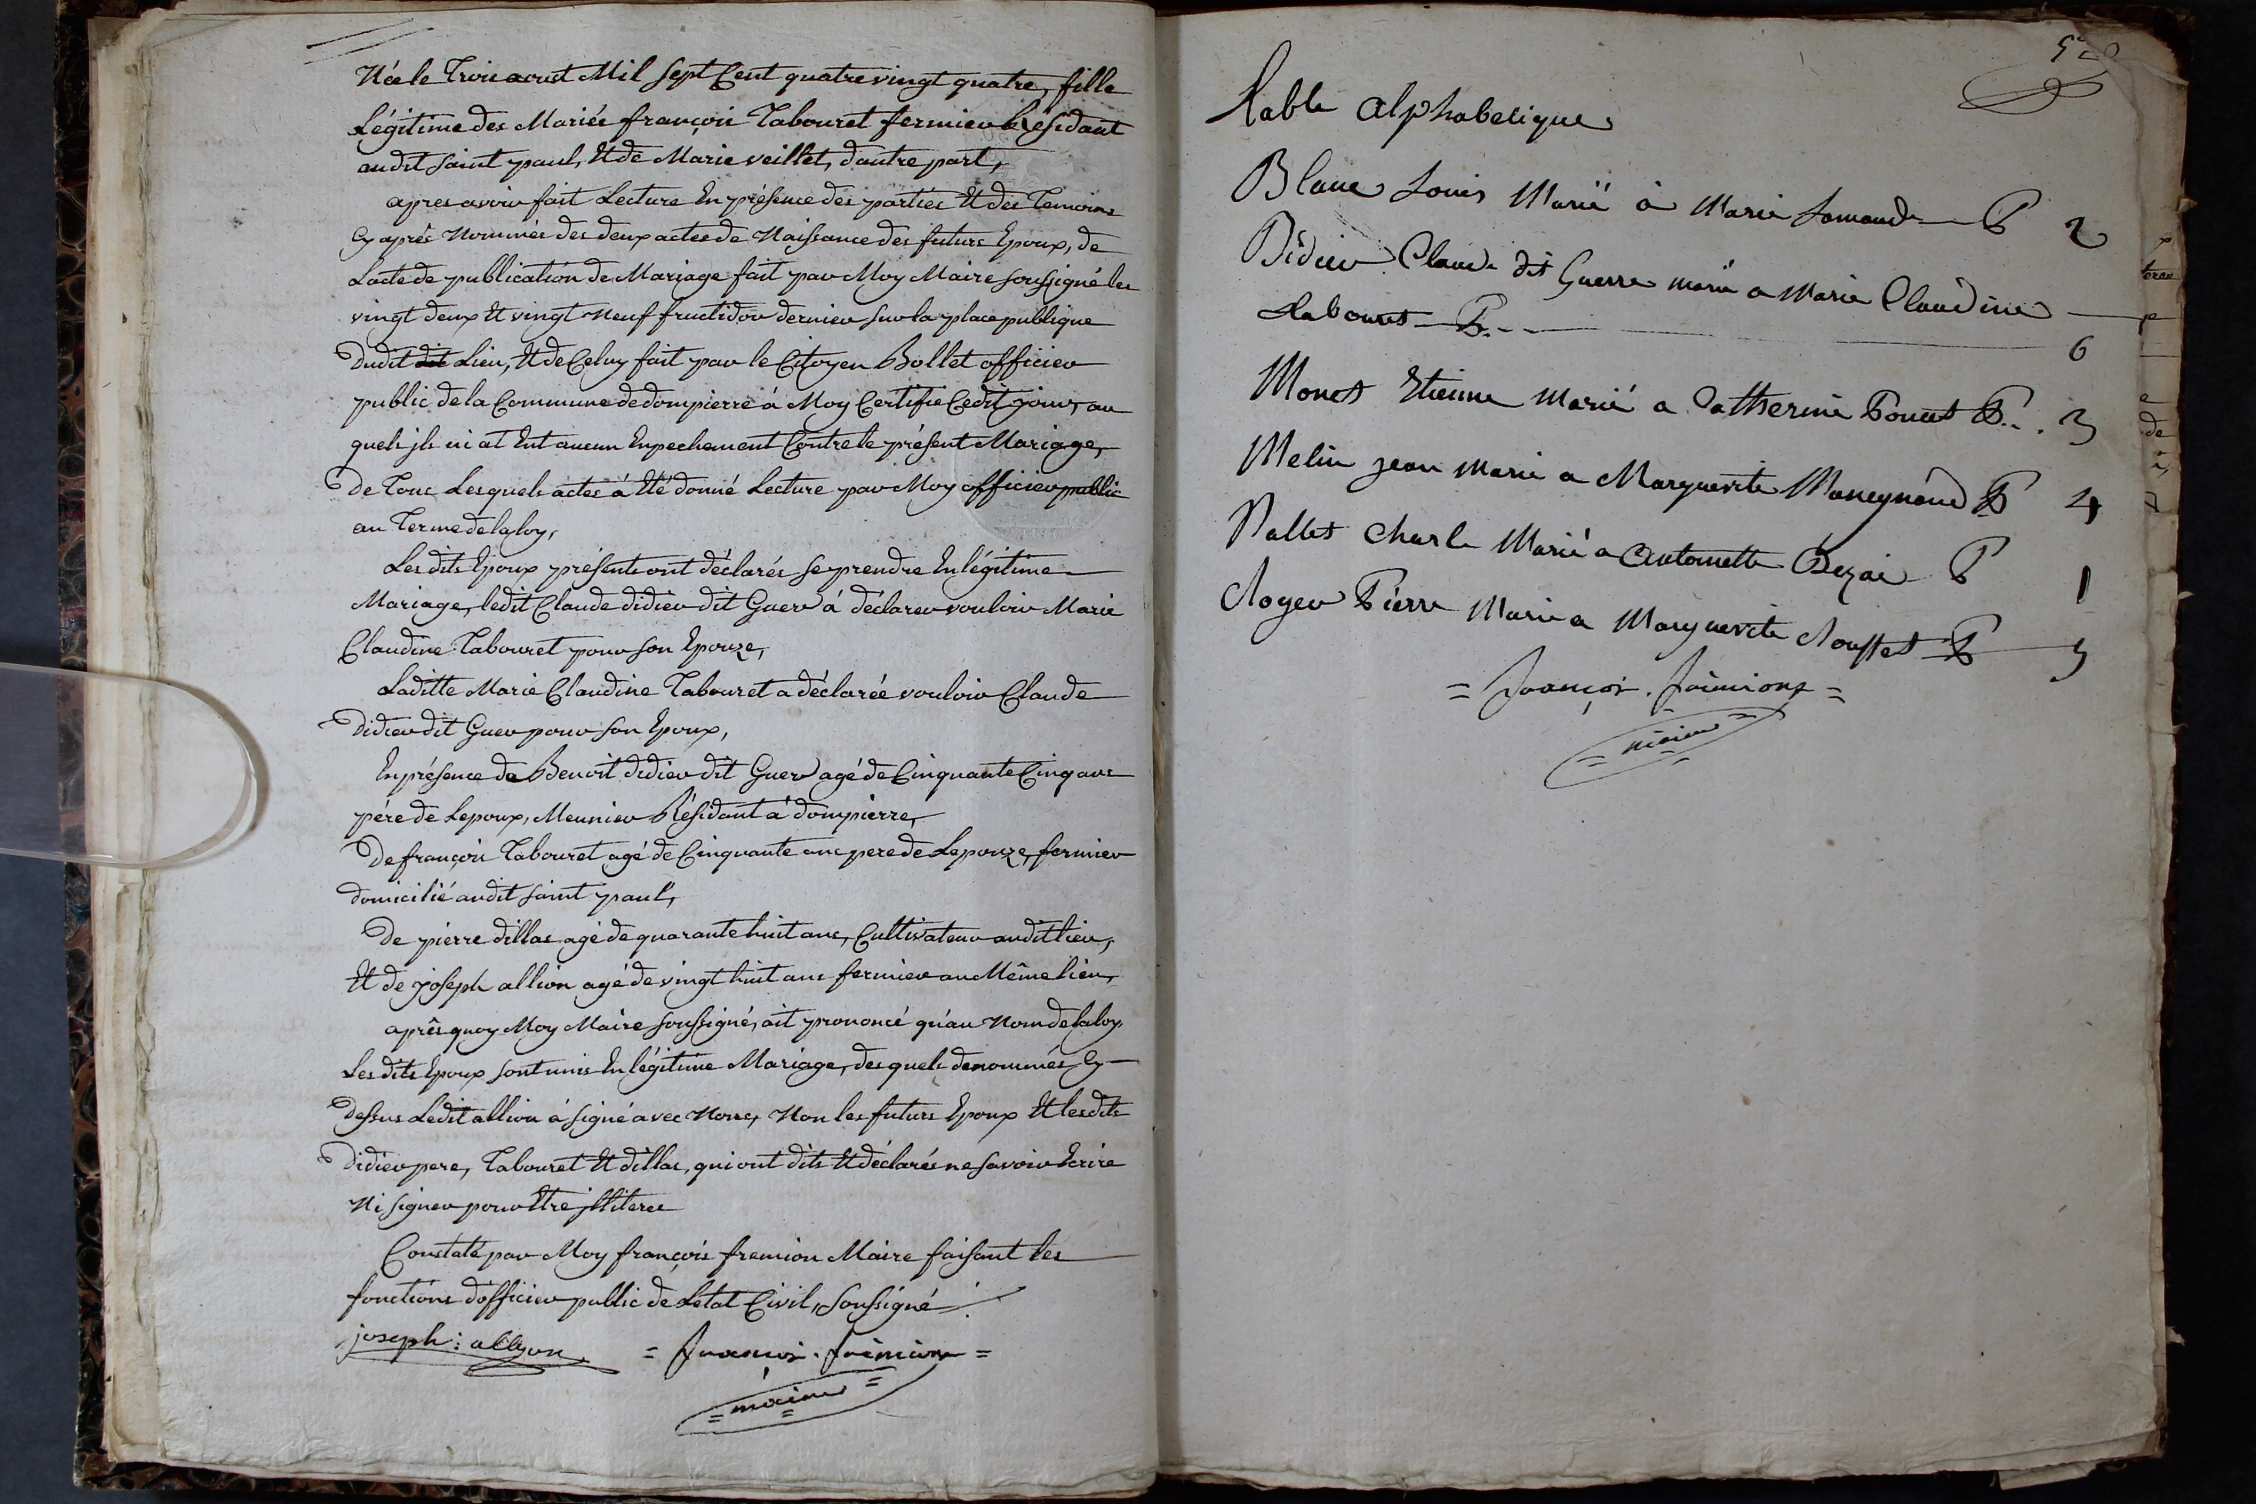 Née le Trois aoust Mil Sept Cent quatre vingt quatre, fille
Légitime des Mariés françois Tabouret fermier Résidant
audit saint paul, Et de Marie veillet, dautre part,
apres avoir fait Lecture En présence des partiés Et des Temoins
Cy aprés Nommés des deux actes de Naissance des futurs Epoux, de
Lacte de publication de Mariage fait par Moy Maire soussigné les
vingt deux Et vingt Neuf fructidor dernier sur la place publique
Dudit dit Lieu, Et de Celuy fait par le Citoyen Bollet officier
public de la Commune de dompierre á Moy Certifie Cedit jour, au
quels jls ni at Ent aucun Enpechement Contre le présent Mariage,
de Tous Lesquels actes á Eté donné Lecture par Moy officier public
au Terme de la loy,
Les dits Epoux présents ont déclarés se prendre En légitime
Mariage, ledit Claude didier dit Guer á déclarer vouloir Marie
Claudine Tabouret pour son Epouze,
Laditte Marie Claudine Tabouret a déclarée vouloir Claude
Didier dit Guer pour son Epoux,
En présence de Benoit didier dit Guer agé de Cinquante Cinq ans
pére de Lepoux, Meunier Résidant á dompierre,
De françois Tabouret agé de Cinquante ans pere de Lepouze, fermier
domicilié audit saint paul,
De pierre dillas agé de quarante huit ans, Cultivateur audit lieu,
Et de joseph allion agé de vingt huit ans fermier au Même lieu,
aprés quoy Moy Maire soussigné, ait prononcé qu'au Nom de la loy,
Les dits Epoux sont unis En légitime Mariage, des quels denommés Cy
dessus Ledit allion á signé avec Nous, Non les futurs Epoux Et lesdits
Didier pere, Tabouret Et dillas, qui ont dits Et déclarés ne savoir Ecrire
Ni signer pour Etre jlliteres
Constaté par Moy françois fremion Maire faisant les
fonctions d'officier public de Létat Civil, Soussigné
joseph : allyon = françois . frémion =
= maire =
Table alphabetique
Blanc Louis Marié á Marie Lamand P 2
Didier Claude dit Guerre marié a Marie Claudine
Tabouret P. 6
Monet Etienne Marié a Catherine Ponset P. 3
Melin jean Marié a Marguerite Maneynaud P 4
Nallet Charle Marié a Antoinette Bezai P 1
Royer Pierre Marié a Marguerite Rousset P 5
= françois . frémion =
= maire =